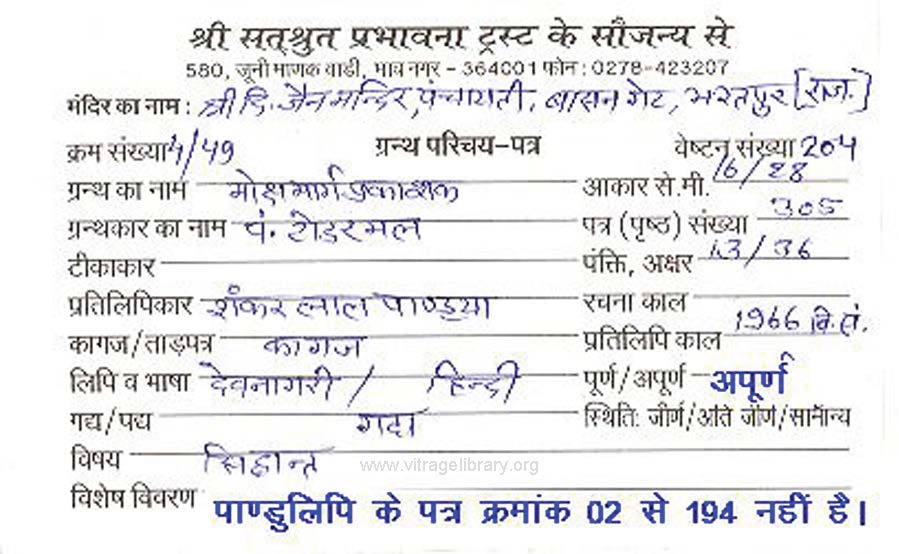 श्री सत्श्रुत प्रभावना ट्रस्ट के सौजन्य से
580, जूनी माणक वाडी, भाव नगर - 364001 फोन : 0278-423207
मंदिर का नाम : श्री दि. जैन मन्दिर, पंचायती, बासन गेट, भरतपुर [राज.]
क्रम संख्या 4/49 ग्रन्थ परिचय-पत्र वेष्टन संख्या 204
ग्रन्थ का नाम मोक्षमार्ग प्रकाशक आकार से.मी. 16/28
ग्रन्थकार का नाम पं. टोडरमल पत्र (पृष्ठ) संख्या 305
टीकाकार पंक्ति, अक्षर 13/36
प्रतिलिपिकार शंकर लाल पाण्ड्या रचना काल
कागज/ताड़पत्र कागज प्रतिलिपि काल 1966 वि.सं.
लिपि व भाषा देवनागरी / हिन्दी पूर्ण/अपूर्ण अपूर्ण
गद्य/पद्य गद्य स्थिति: जीर्ण/अति जीर्ण/सामान्य
विषय सिद्धान्त
www.vitragelibrary.org
विशेष विवरण पाण्डुलिपि के पत्र क्रमांक 02 से 194 नहीं है।